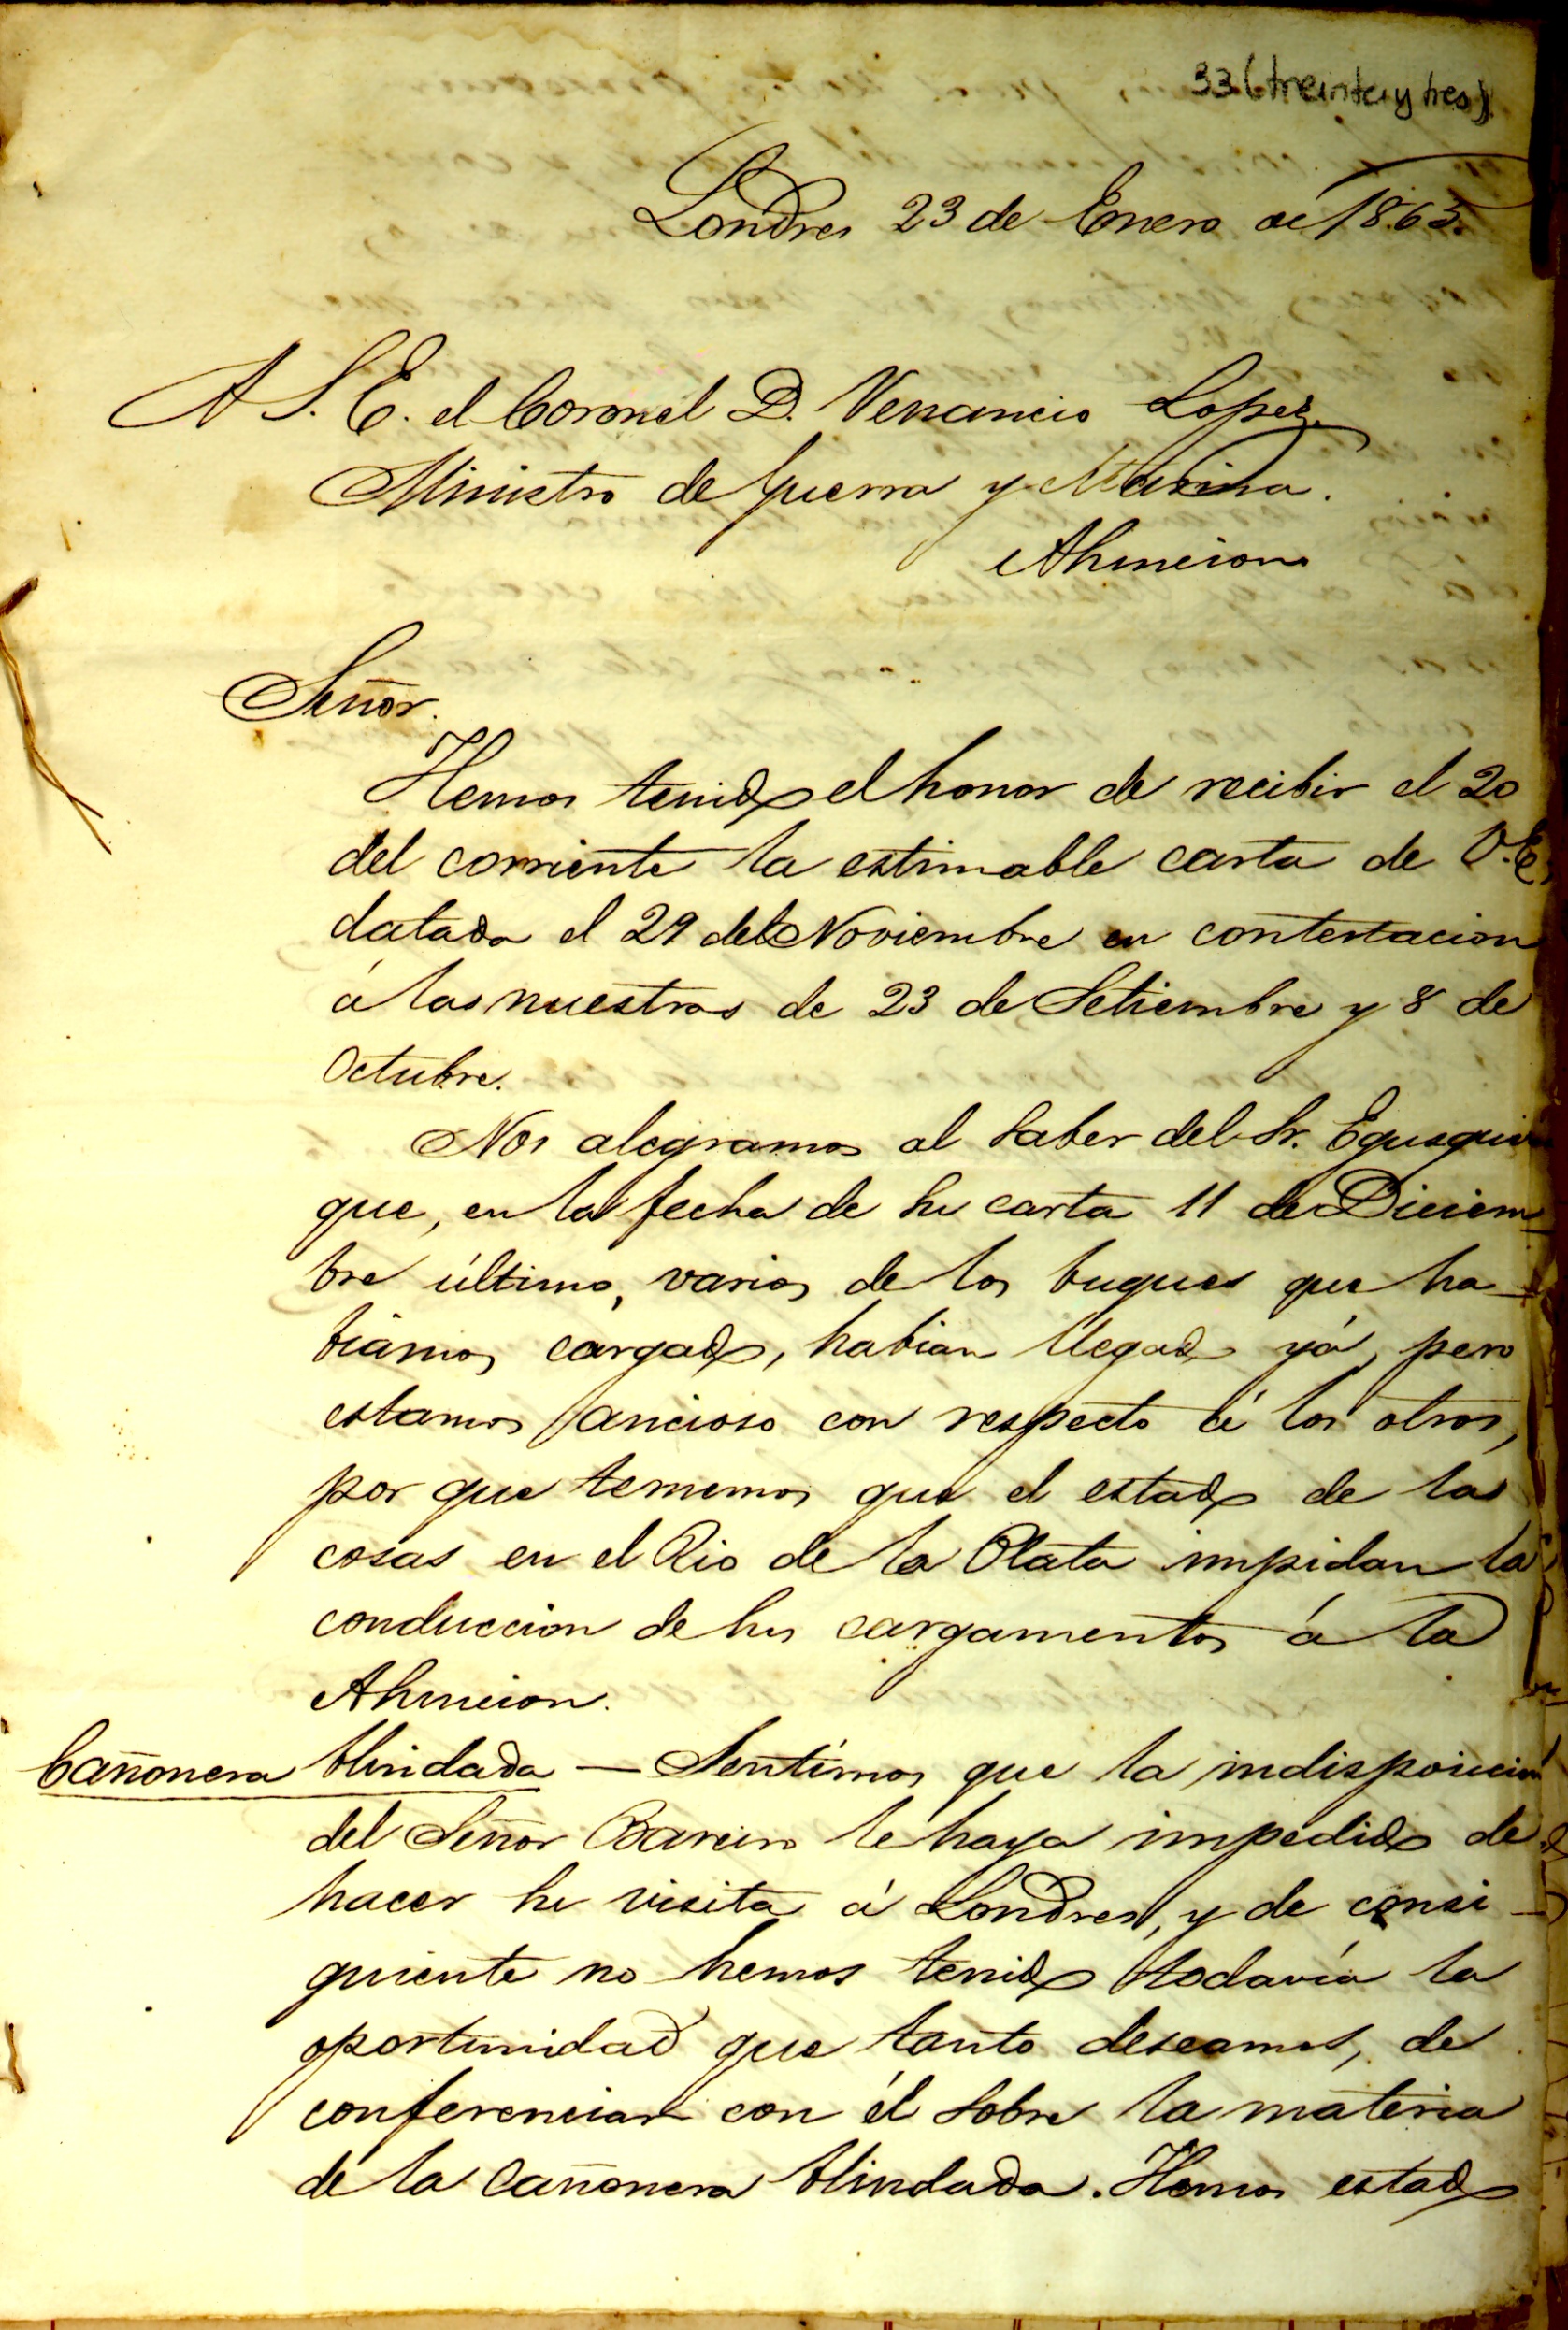 33 (treinta y tres)
Londres 23 de Enero de 1865.
A S. E. el Coronel D. Venancio Lopez
Ministro de Guerra y Marina.
Asuncion
Señor.
Hemos tenido el honor de recibir el 20
del corriente la estimable carta de V. E.
datada el 29 de Noviembre en contestacion
á las nuestras de 23 de Setiembre y 8 de
Octubre.
Nos alegramos al saber del Sr. Egusquiza
que, en la fecha de su carta 11 de Diciem
bre último, varios de los buques que ha-
biamos cargado, habian llegado yá, pero
estamos ancioso con respecto á los otros,
por que tememos que el estado de las
cosas en el Rio de la Plata impidan la
conduccion de sus cargamentos á la
Asuncion.
Cañonera blindada — Sentimos que la indisposicion
del Señor Bareiro le haya impedido de
hacer su visita á Londres, y de consi-
guiente no hemos tenido todavía la
oportunidad que tanto deseamos, de
conferenciar con él sobre la materia
de la cañonera blindada. Hemos estado